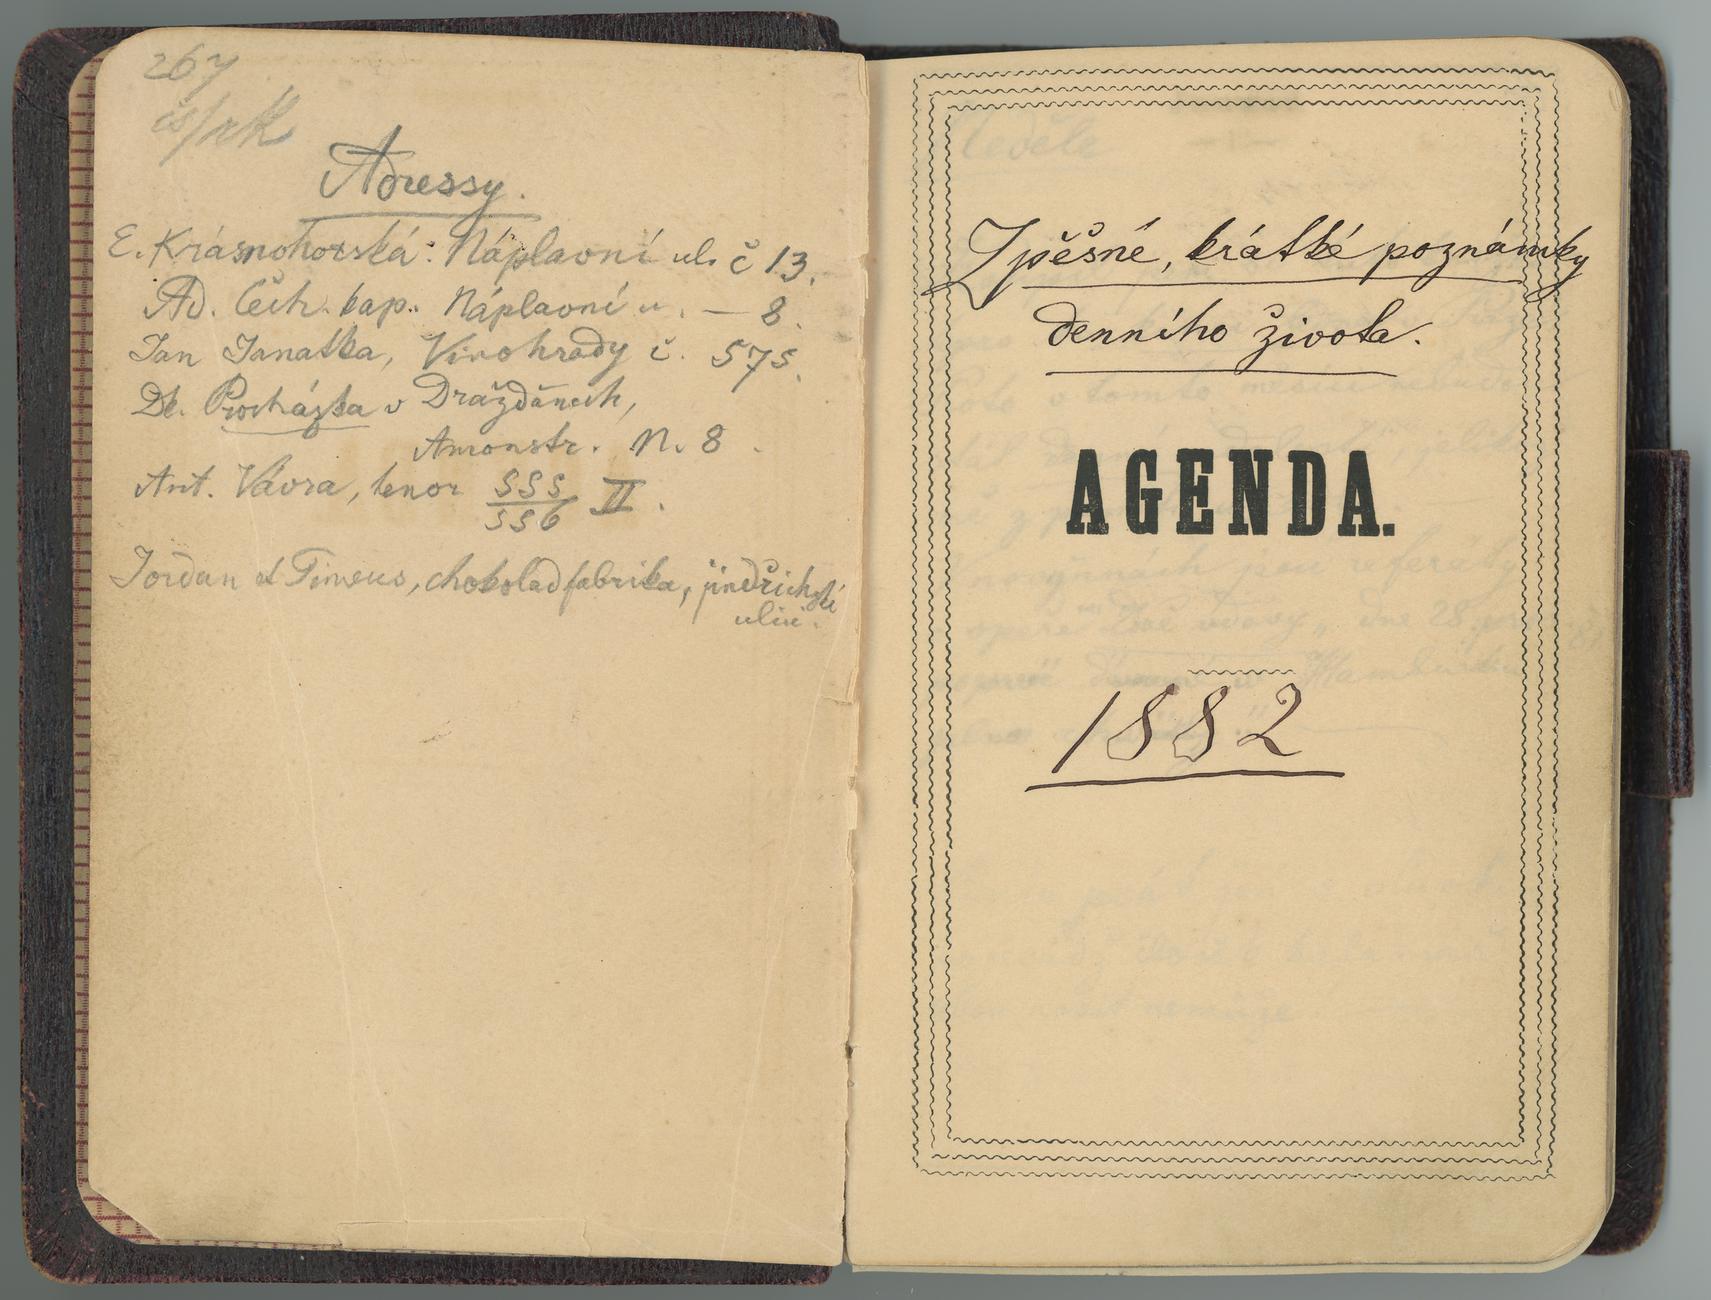 267
Adressy.
E. Krásnohorská: Náplavní ul. č 13.
Ad. Čech. kap. Náplavní u. — 8.
Jan Janatka, Vinohrady č. 575.
Dr. Procházka v Drážďanech,
Amonstr. N. 8.
Ant. Vávra, tenor 555/556 II.
Jordan et Timeus, chokolad fabrika, jindřichská
ulici.
Zpěšné, krátké poznámky
denního života.
AGENDA.
1882